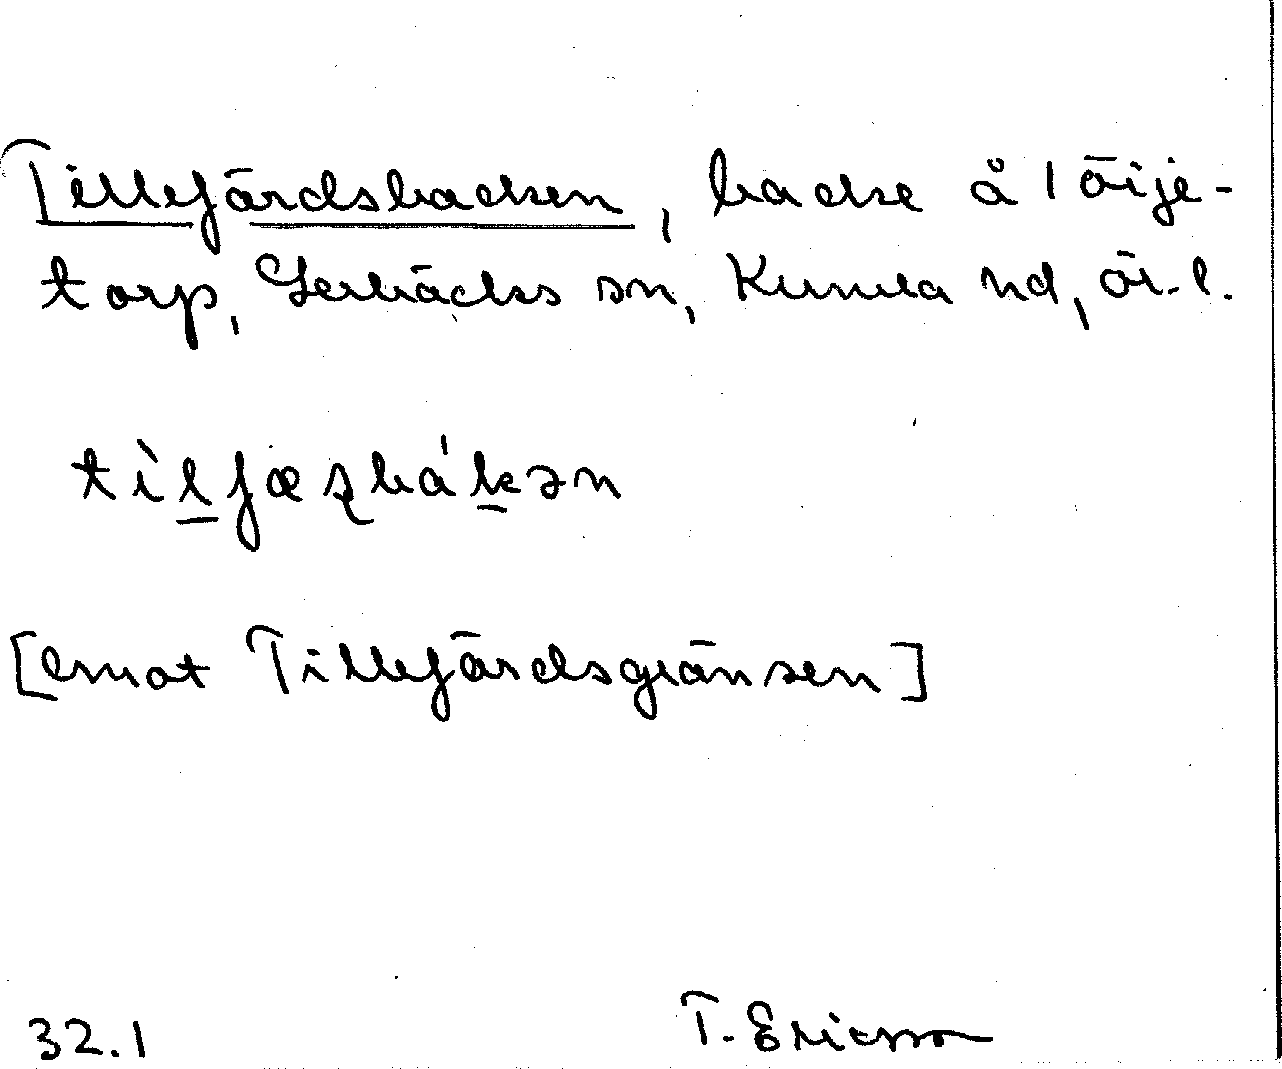 Tillefärdsbacken, backe å 1 öije-
torp, Lerbäcks sn, Kumla hd, ör. l.
tìl̲fæʂbák̲ən
[emot Tillefärdsgränsen]
32.1 T. Ericsson